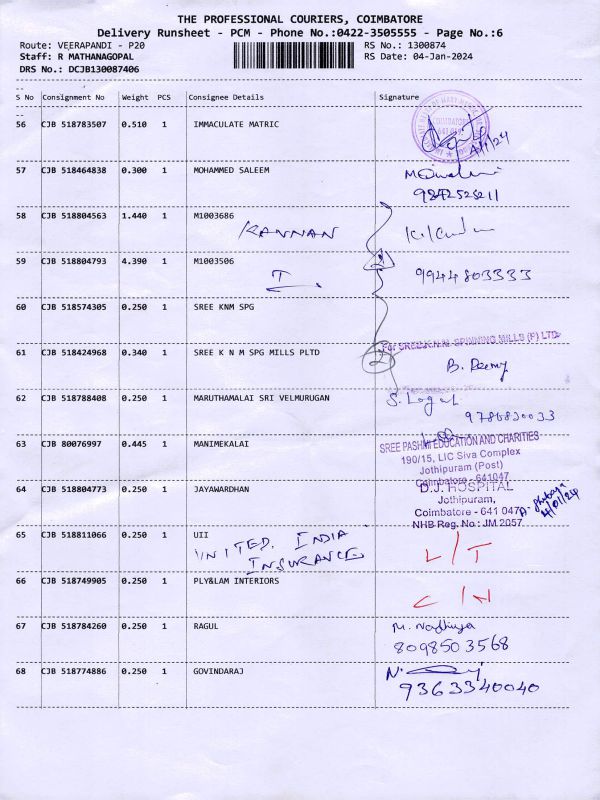 THE PROFESSIONAL COURIERS, COIMBATORE
Delivery Runsheet - PCM - Phone No.:0422-3505555 - Page No.:6
Route: VEERAPANDI - P20 RS No.: 1300874
Staff: R MATHANAGOPAL RS Date: 04-Jan-2024
DRS No.: DCJB130087406
S No Consignment No Weight PCS Consignee Details Signature
56 CJB 518783507 0.510 1 IMMACULATE MATRIC
COIMBATORE
4/1/24
57 CJB 518464838 0.300 1 MOHAMMED SALEEM
58 CJB 518804563 1.440 1 M1003686
KANNAN
59 CJB 518804793 4.390 1 M1003506
I 9944803333
60 CJB 518574305 0.250 1 SREE KNM SPG
For SREE K.N.M. SPINNING MILLS (P) LTD
61 CJB 518424968 0.340 1 SREE K N M SPG MILLS PLTD
2
62 CJB 518788408 0.250 1 MARUTHAMALAI SRI VELMURUGAN
S. Logu
9786830033
63 CJB 80076997 0.445 1 MANIMEKALAI
SREE PASHMI EDUCATION AND CHARITIES
190/15, LIC Siva Complex
Jothipuram (Post)
Coimbatore - 641047
64 CJB 518804773 0.250 1 JAYAWARDHAN
D.J. HOSPITAL
Jothipuram,
Coimbatore - 641 047
NHB Reg. No : JM 2057
4/01/24
65 CJB 518811066 0.250 1 UII
UNITED. INDIA
INSURANCE
L/T
66 CJB 518749905 0.250 1 PLY&LAM INTERIORS
C/N
67 CJB 518784260 0.250 1 RAGUL
M. Nadhiya
8098503568
68 CJB 518774886 0.250 1 GOVINDARAJ
9363340040